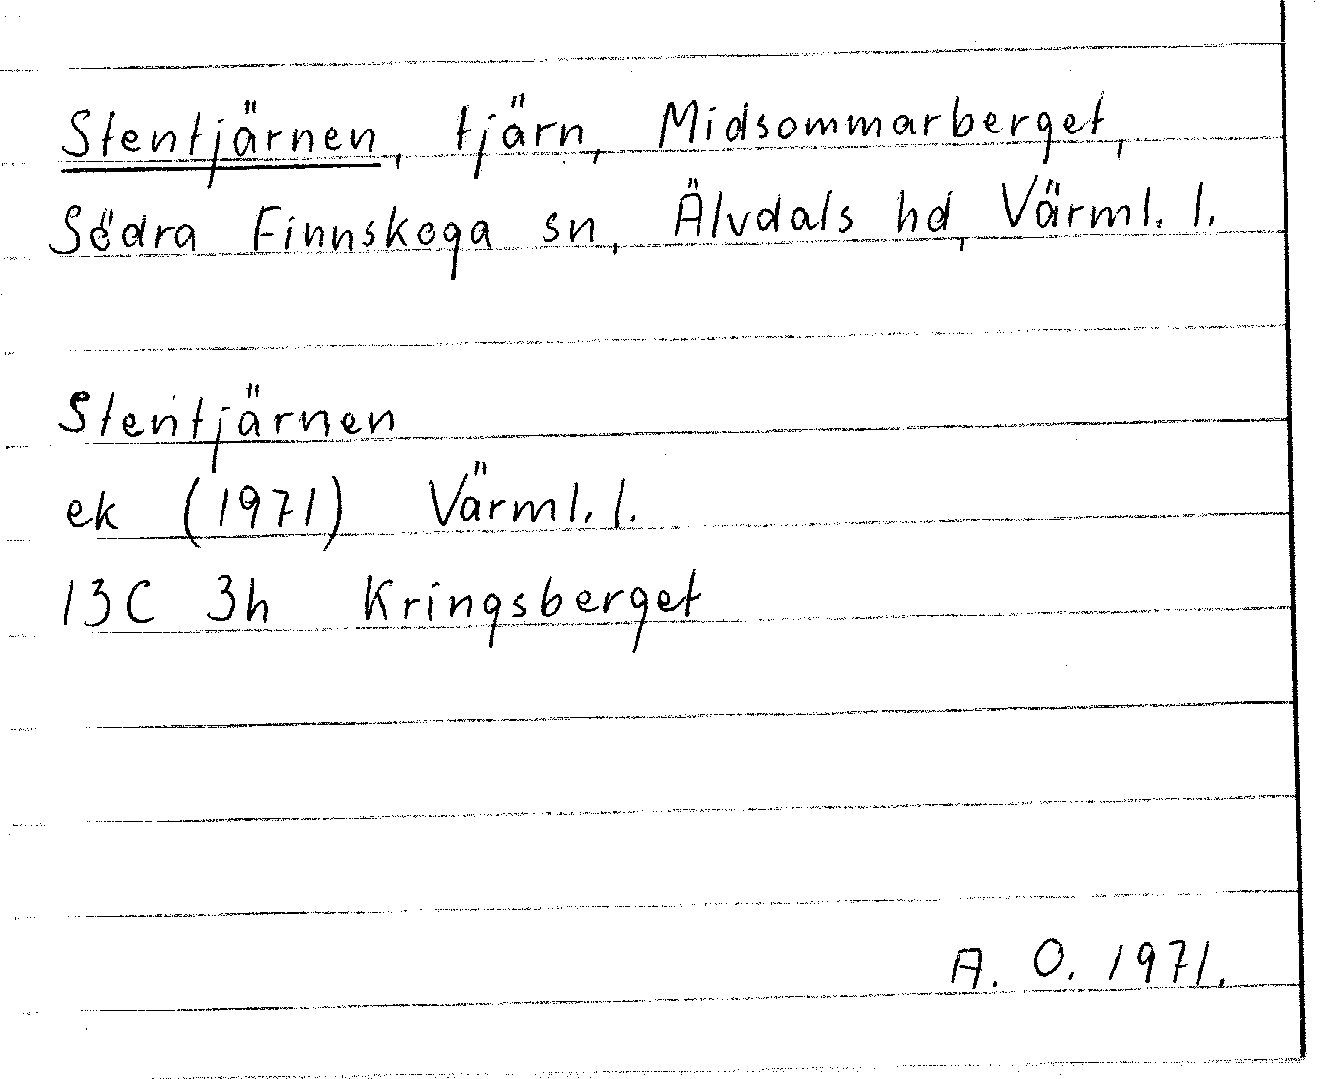 Stentjärnen, tjärn, Midsommarberget,
Södra Finnskoga sn, Älvdals hd, Värml. l.
Stentjärnen
ek (1971) Värml. l.
13C 3h Kringsberget
A. O. 1971.